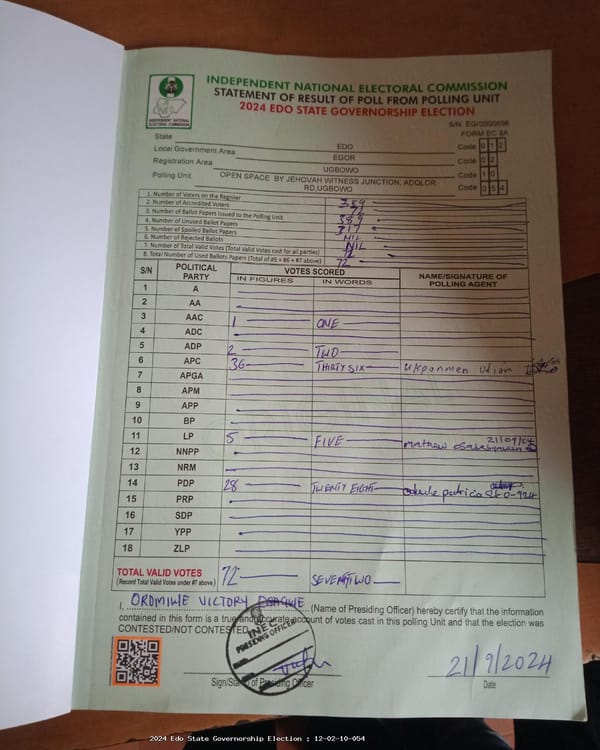 INDEPENDENT NATIONAL ELECTORAL COMMISSION
STATEMENT OF RESULT OF POLL FROM POLLING UNIT
2024 EDO STATE GOVERNORSHIP ELECTION
INDEPENDENT NATIONAL ELECTORAL COMMISSION
FORM EC 8A
State EDO Code 0 1 2
Local Government Area EGOR Code 0 2
Registration Area UGBOWO Code 1 0
Polling Unit OPEN SPACE BY JEHOVAH WITNESS JUNCTION, ADOLOR RD,UGBOWO Code 0 5 4
1. Number of Voters on the Register 389
2. Number of Accredited Voters 72
3. Number of Ballot Papers Issued to the Polling Unit 389
4. Number of Unused Ballot Papers 317
5. Number of Spoiled Ballot Papers NIL
6. Number of Rejected Ballots NIL
7. Number of Total Valid Votes (Total Valid Votes cast for all parties) 72
8. Total Number of Used Ballots Papers (Total of #5 + #6 + #7 above) 72
S/N POLITICAL PARTY VOTES SCORED NAME/SIGNATURE OF POLLING AGENT
IN FIGURES IN WORDS
1 A
2 AA
3 AAC 1 ONE
4 ADC
5 ADP 2 TWO
6 APC 36 THIRTY SIX
7 APGA
8 APM
9 APP
10 BP
11 LP 5 FIVE 21/09/24
12 NNPP
13 NRM
14 PDP 28 TWENTY EIGHT patricia
15 PRP
16 SDP
17 YPP
18 ZLP
TOTAL VALID VOTES 72 SEVENTWO
(Record Total Valid Votes under #7 above)
I, OROMIWE VICTORY (Name of Presiding Officer) hereby certify that the information
contained in this form is a true and accurate account of votes cast in this polling Unit and that the election was
CONTESTED/NOT CONTESTED
INEC
PRESIDING OFFICER
21/9/2024
Sign/Stamp of Presiding Officer Date
2024 Edo State Governorship Election : 12-02-10-054